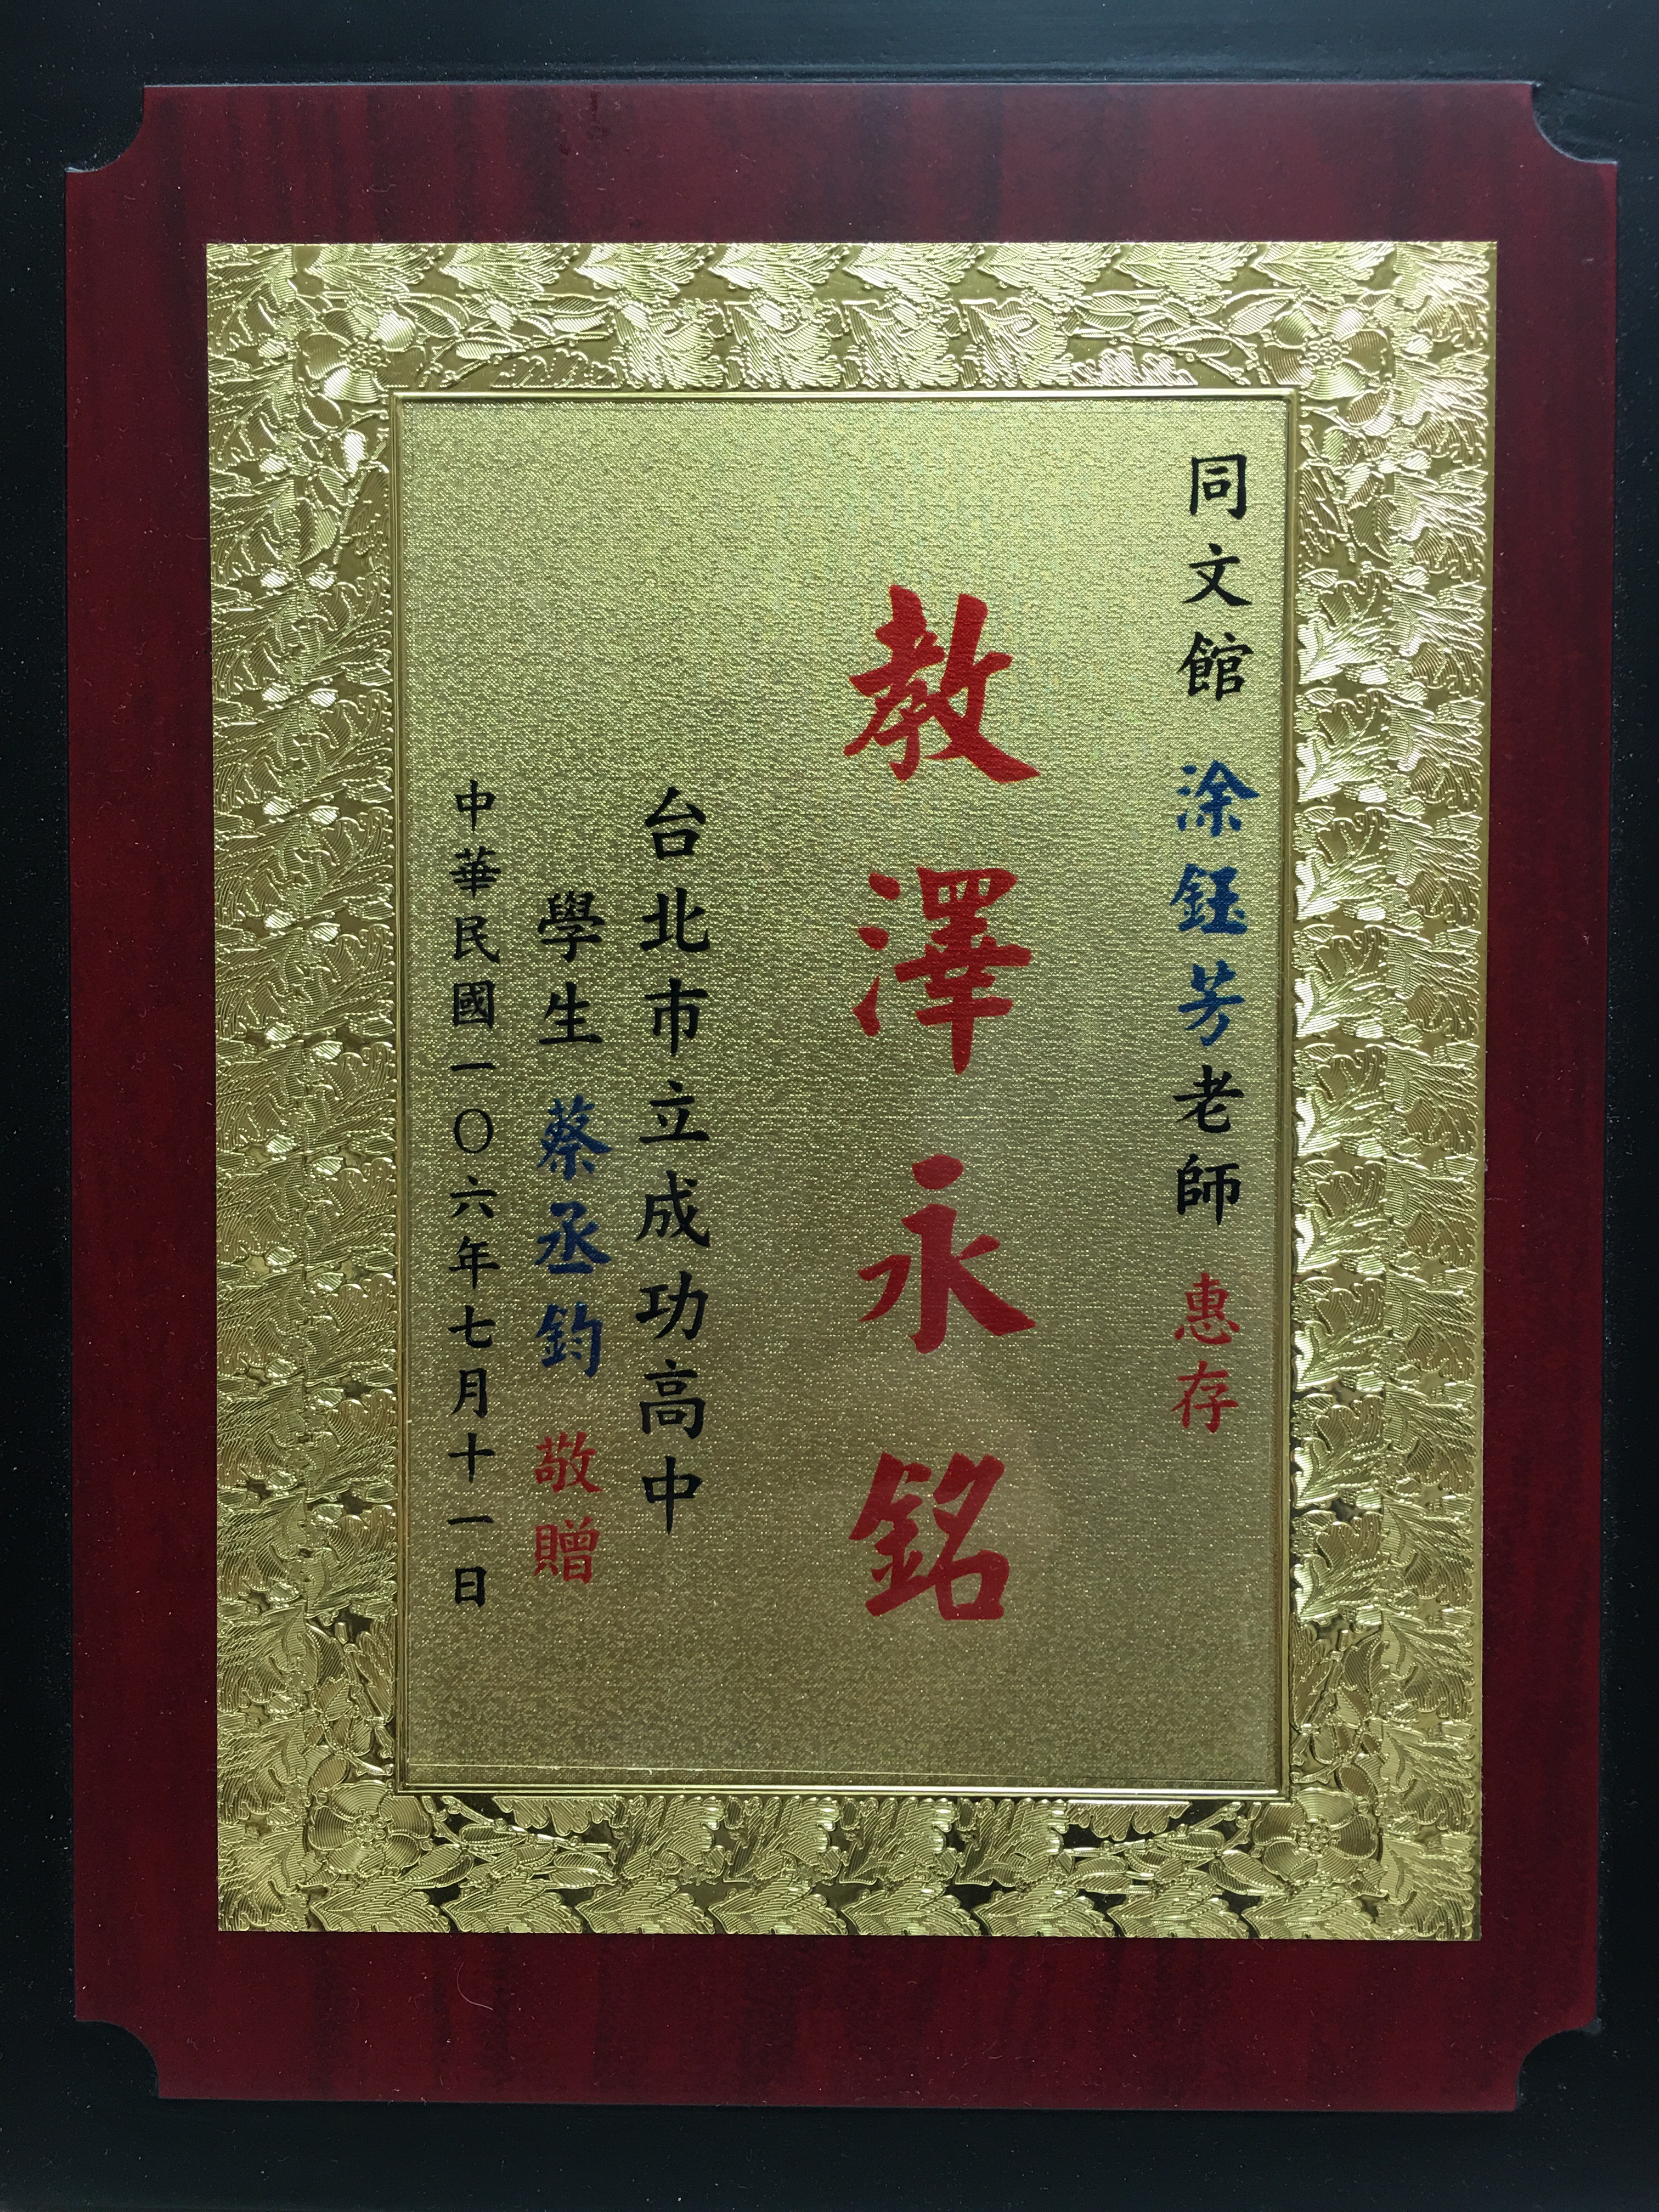 同文館 涂鈺芳老師 惠存
教澤永銘
台北市立成功高中
學生 蔡丞鈞 敬贈
中華民國一〇六年七月十一日